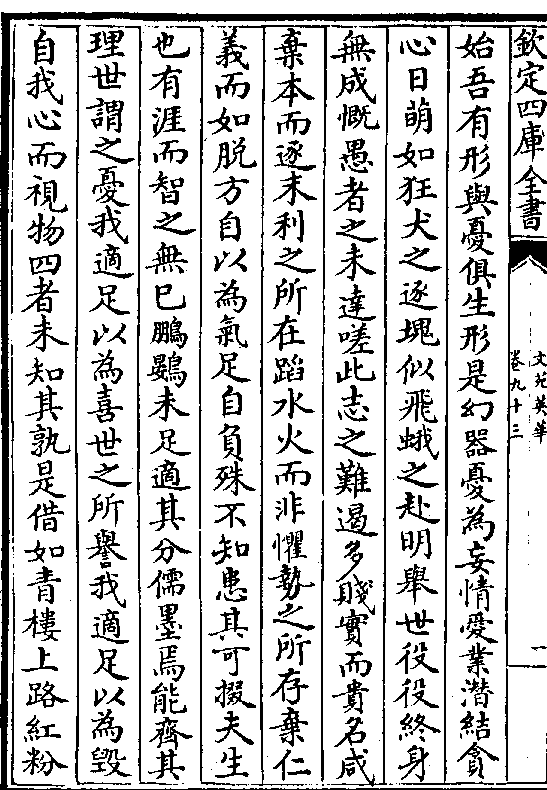 欽定四庫全書
文苑英華
卷九十三
一
始吾有形與憂俱生形是幻器憂為妄情愛業潛結貪
心日萌如狂犬之逐塊似飛蛾之赴明舉世役役終身
無成慨愚者之未達嗟此志之難遏多賤實而貴名咸
棄本而逐末利之所在蹈水火而非懼勢之所存棄仁
義而如脱方自以為氣足自負殊不知患其可掇夫生
也有涯而智之無已鵬鷃未足適其分儒墨焉能齊其
理世謂之憂我適足以為喜世之所譽我適足以為毁
自我心而視物四者未知其孰是借如青樓上路紅粉